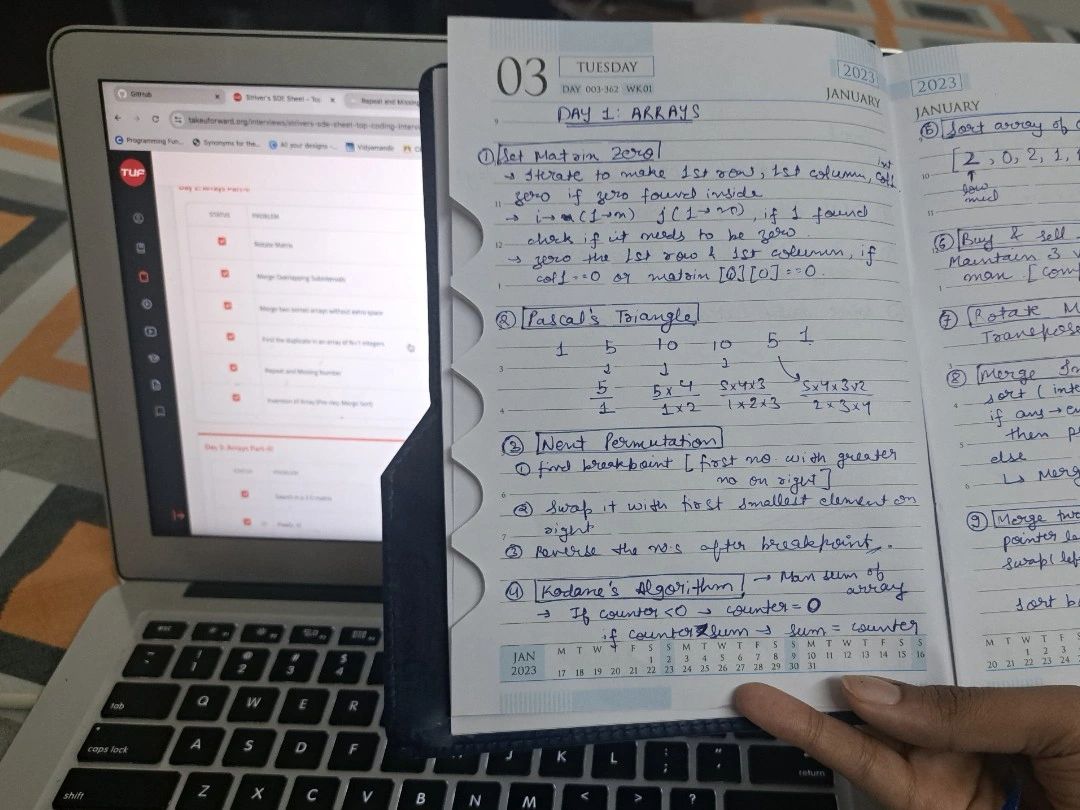 GitHub
Striver's SDE Sheet - Top
Repeat and Missing
takeuforward.org/interviews/strivers-sde-sheet-top-coding-interv
Programming Fun...
Synonyms for the...
All your designs -...
Vidyamandir
TUF
STATUS PROBLEM
Rotate Matrix
Merge Overlapping Subintervals
Merge two sorted arrays without extra space
Find the duplicate in an array of N+1 integers
Repeat and Missing Number
Inversion of Array (Pre-req: Merge Sort)
Day 3: Arrays Part-III
STATUS PROBLEM
Search in a 2 D matrix
esc
! 1
@ 2
# 3
$ 4
tab Q W E R
caps lock A S D F J K L : ; " ' return
shift Z X C V B N M < > ?
03 TUESDAY
DAY 003-362 WK01
2023
JANUARY
DAY 1: ARRAYS
① Set Matrix Zero
→ Iterate to make 1st row, 1st column, int col1
zero if zero found inside
→ i→ (1→n) j(1→m), if 1 found
check if it needs to be zero.
→ zero the 1st row & 1st column, if
col1==0 or matrix [0][0]==0.
② Pascal's Triangle
1 5 10 10 5 1
5 5x4 5x4x3 5x4x3x2
1 1x2 1x2x3 2x3x4
③ Next Permutation
① find breakpoint [first no. with greater
no on right]
② Swap it with first smallest element on
right
③ Reverse the no.s after breakpoint.
④ Kadane's Algorithm → Max sum of
array
→ If counter <0 → counter = 0
if counter > sum → sum = counter
JAN
2023
M T W T F S S M T W T F S S M T W T F S S
1 2 3 4 5 6 7 8 9 10 11 12 13 14 15 16
17 18 19 20 21 22 23 24 25 26 27 28 29 30 31
2023
JANUARY
⑤ Sort array of
[2, 0, 2, 1,
low
mid
⑥ Buy & Sell
Maintain 3
⑦ Rotate M
Transpose
⑧ Merge In
sort (inte
if ans →
then p
else
↳ Merg
⑨ Merge two
pointer le
swap( lef
sort b
M T W T F S
1 2 3
20 21 22 23 24